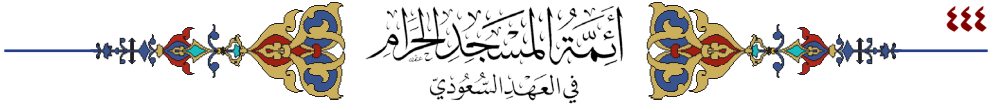 أَئِمَّةُ المَسْجِدِ الحَرَامِ
فِي العَهْدِ السُّعُودِيّ
٤٤٤